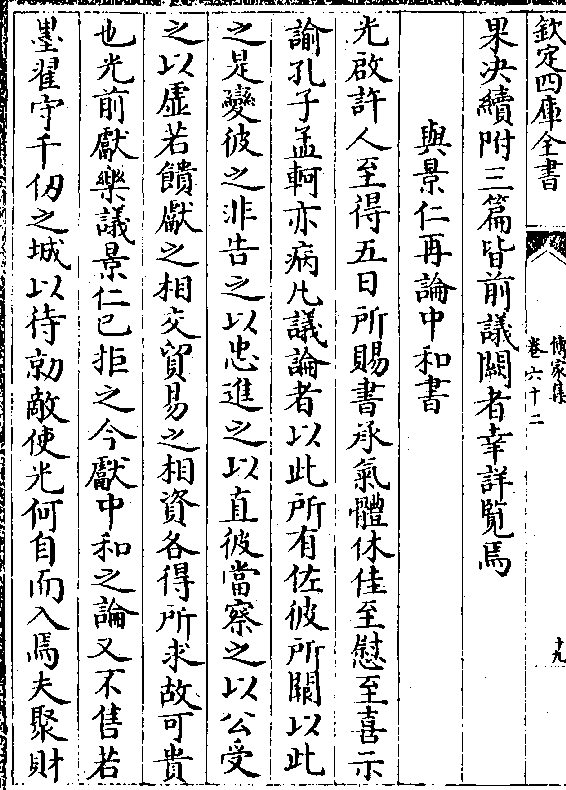 欽定四庫全書
傳家集
卷六十二
十九
果決續附三篇皆前議闕者幸詳覧焉
與景仁再論中和書
光啟許人至得五日所賜書承氣體休佳至慰至喜示
諭孔子孟軻亦病凡議論者以此所有佐彼所闕以此
之是變彼之非告之以忠進之以直彼當察之以公受
之以虛若饋獻之相交貿易之相資各得所求故可貴
也光前獻樂議景仁已拒之今獻中和之論又不售若
墨翟守千仞之城以待勍敵使光何自而入焉夫聚財